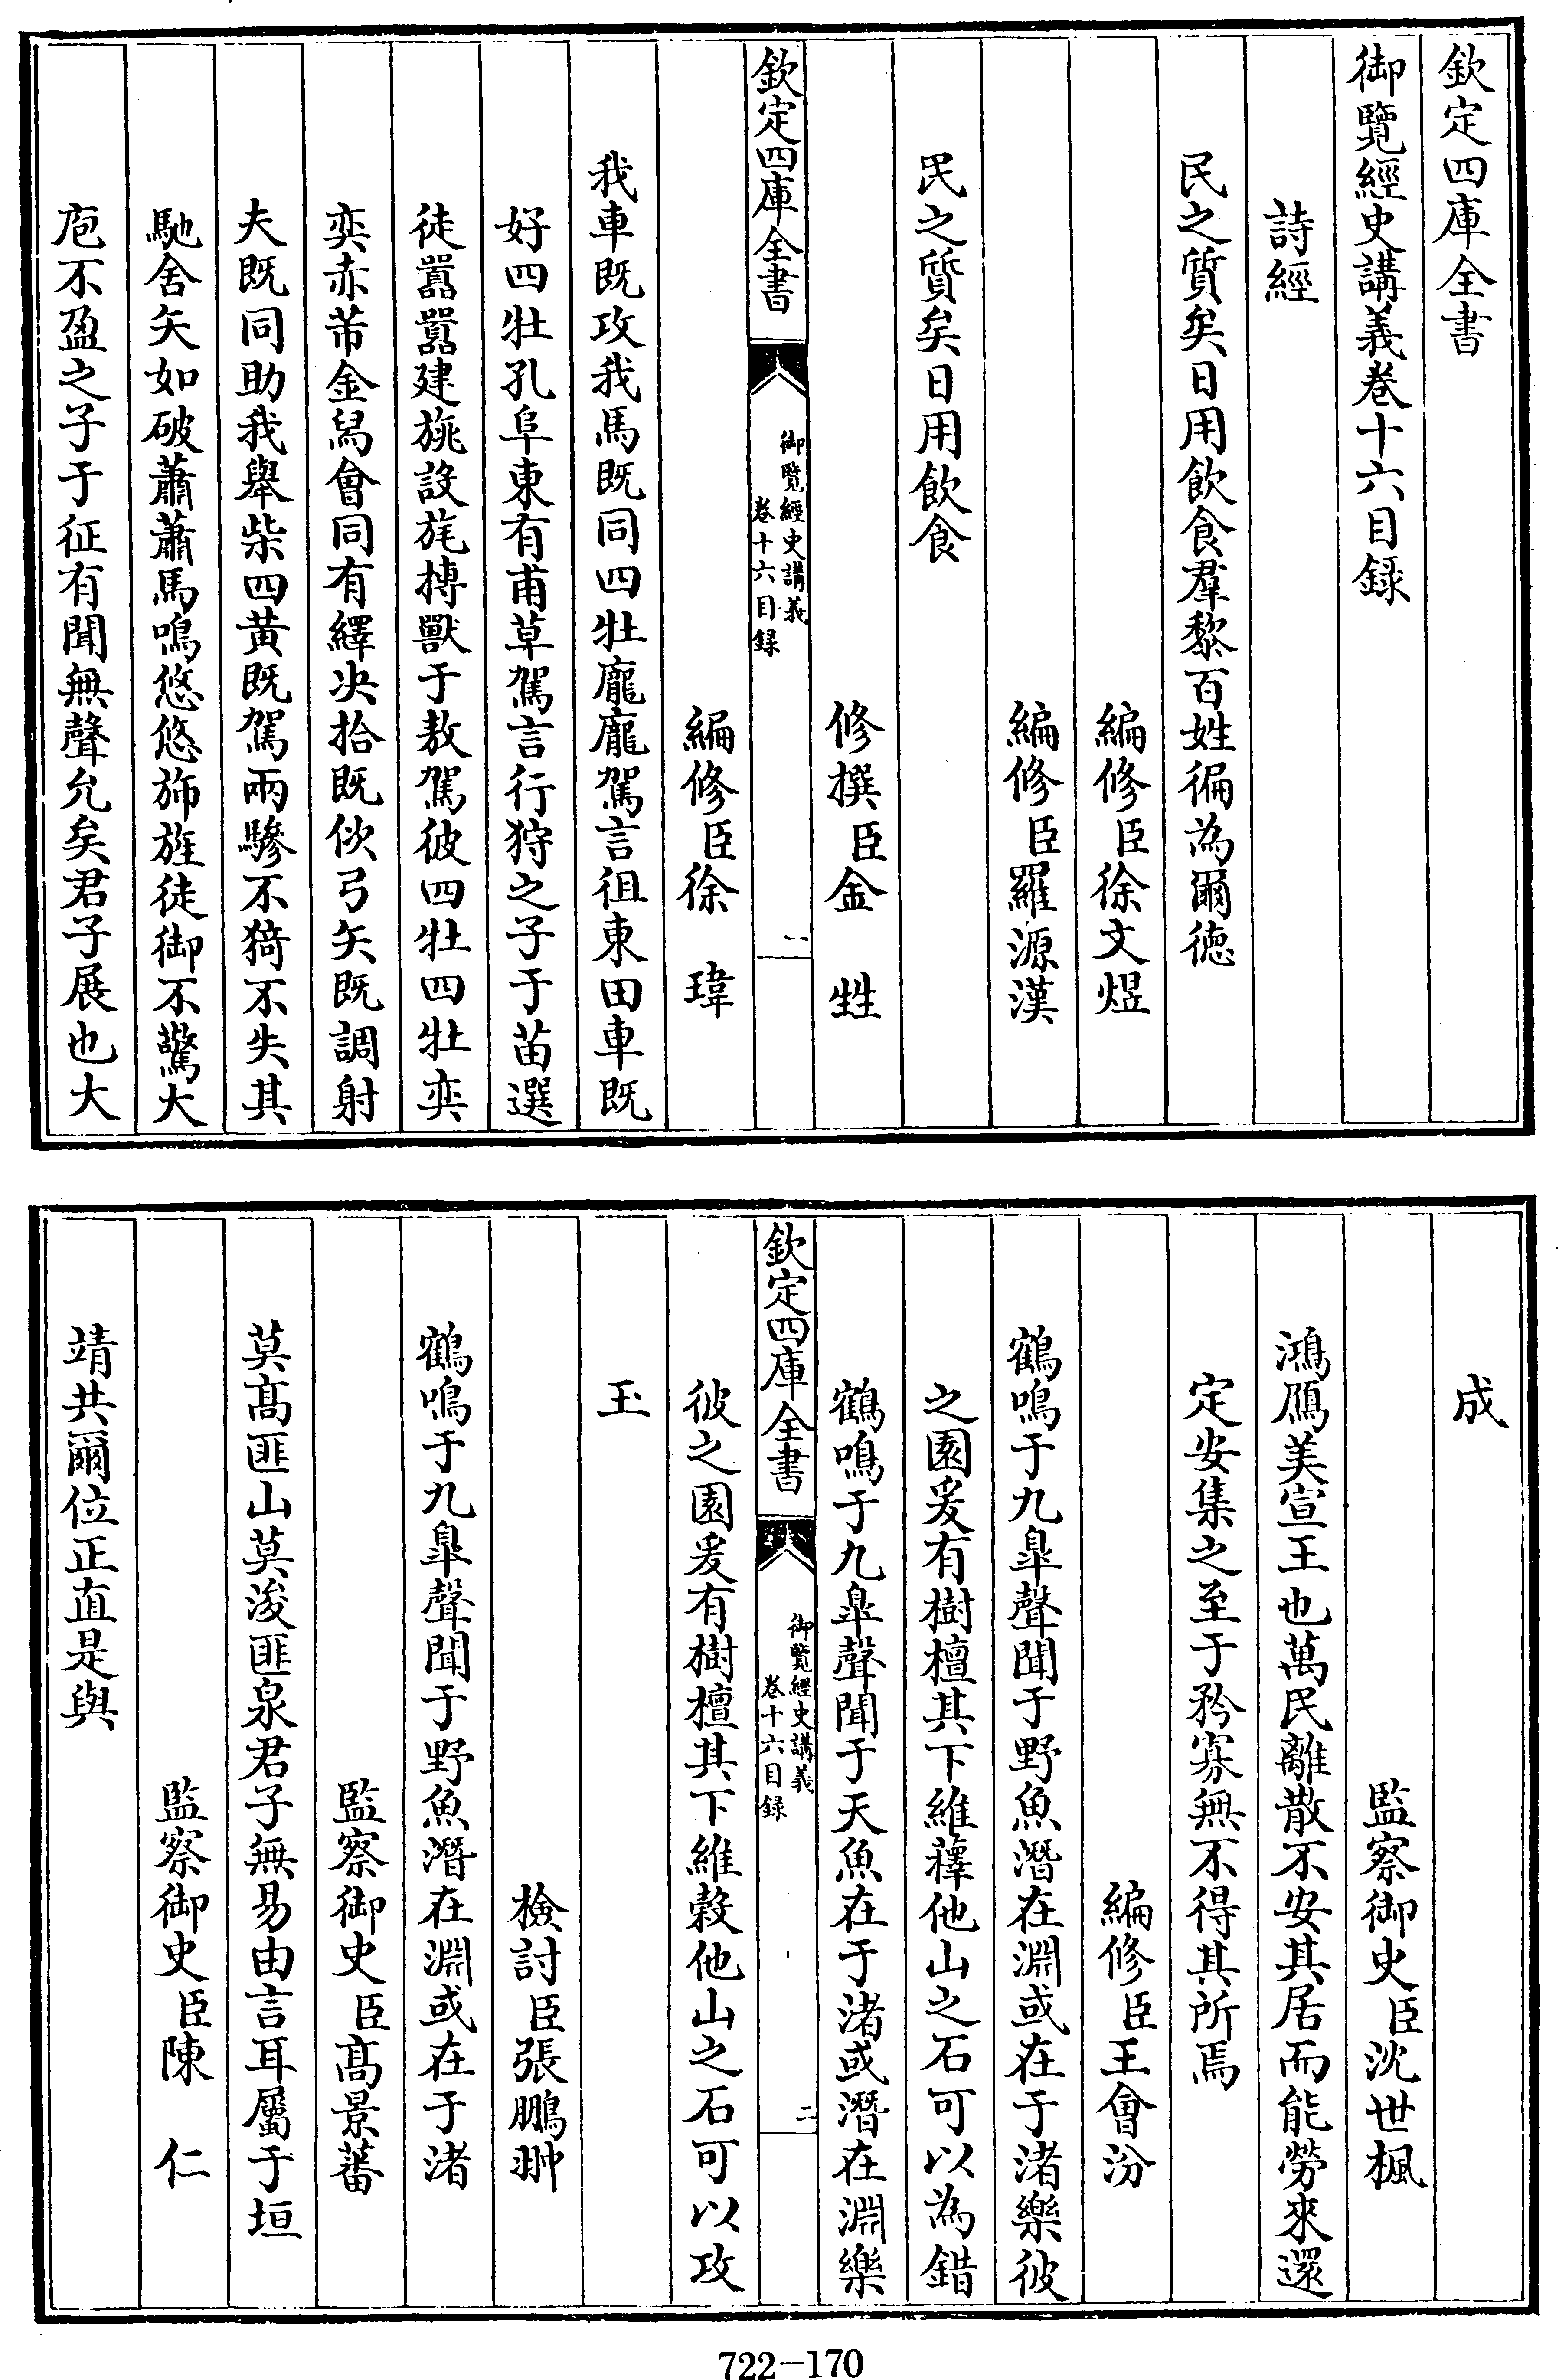 欽定四庫全書
御覽經史講義卷十六目録
詩經
民之質矣日用飲食羣黎百姓徧為爾徳
編修臣徐文煜
編修臣羅源漢
民之質矣日用飲食
修撰臣金 甡
欽定四庫全書
御覽經史講義
卷十六目録
一
編修臣徐 瑋
我車既攻我馬既同四牡龐龐駕言徂東田車既
好四牡孔阜東有甫草駕言行狩之子于苗選
徒囂囂建旐設旄摶獸于敖駕彼四牡四牡奕
奕赤芾金舄會同有繹决拾既佽弓矢既調射
夫既同助我舉柴四黄既駕兩驂不猗不失其
馳舍矢如破蕭蕭馬鳴悠悠斾旌徒御不驚大
庖不盈之子于征有聞無聲允矣君子展也大
成
監察御史臣沈世楓
鴻鴈美宣王也萬民離散不安其居而能勞來還
定安集之至于矜寡無不得其所焉
編修臣王會汾
鶴鳴于九臯聲聞于野魚潛在淵或在于渚樂彼
之園爰有樹檀其下維蘀他山之石可以為錯
鶴鳴于九臯聲聞于天魚在于渚或潛在淵樂
欽定四庫全書
御覽經史講義
卷十六目録
二
彼之園爰有樹檀其下維榖他山之石可以攻
玉
檢討臣張鵬翀
鶴鳴于九臯聲聞于野魚潛在淵或在于渚
監察御史臣髙景蕃
莫髙匪山莫浚匪泉君子無易由言耳屬于垣
監察御史臣陳 仁
靖共爾位正直是與
722-170